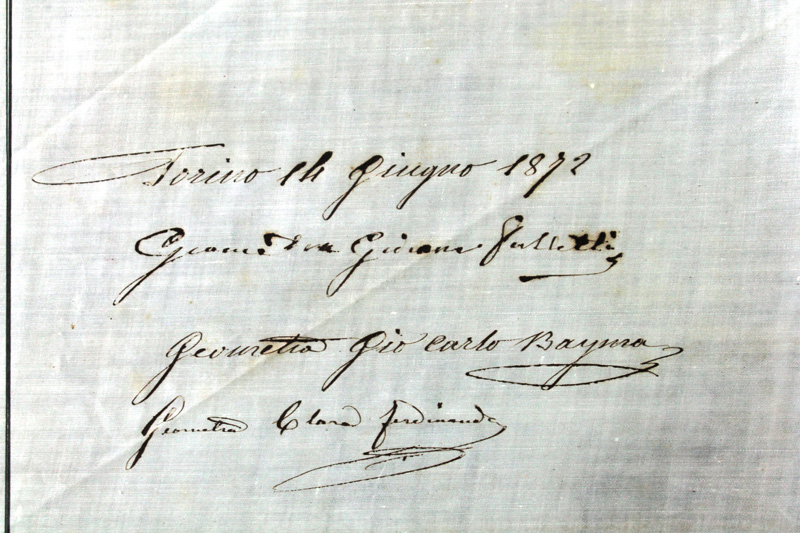 Torino 14 Giugno 1872
Geometra Giovanni
Geometra Gio Carlo Bayma
Geometra Clara Ferdinando